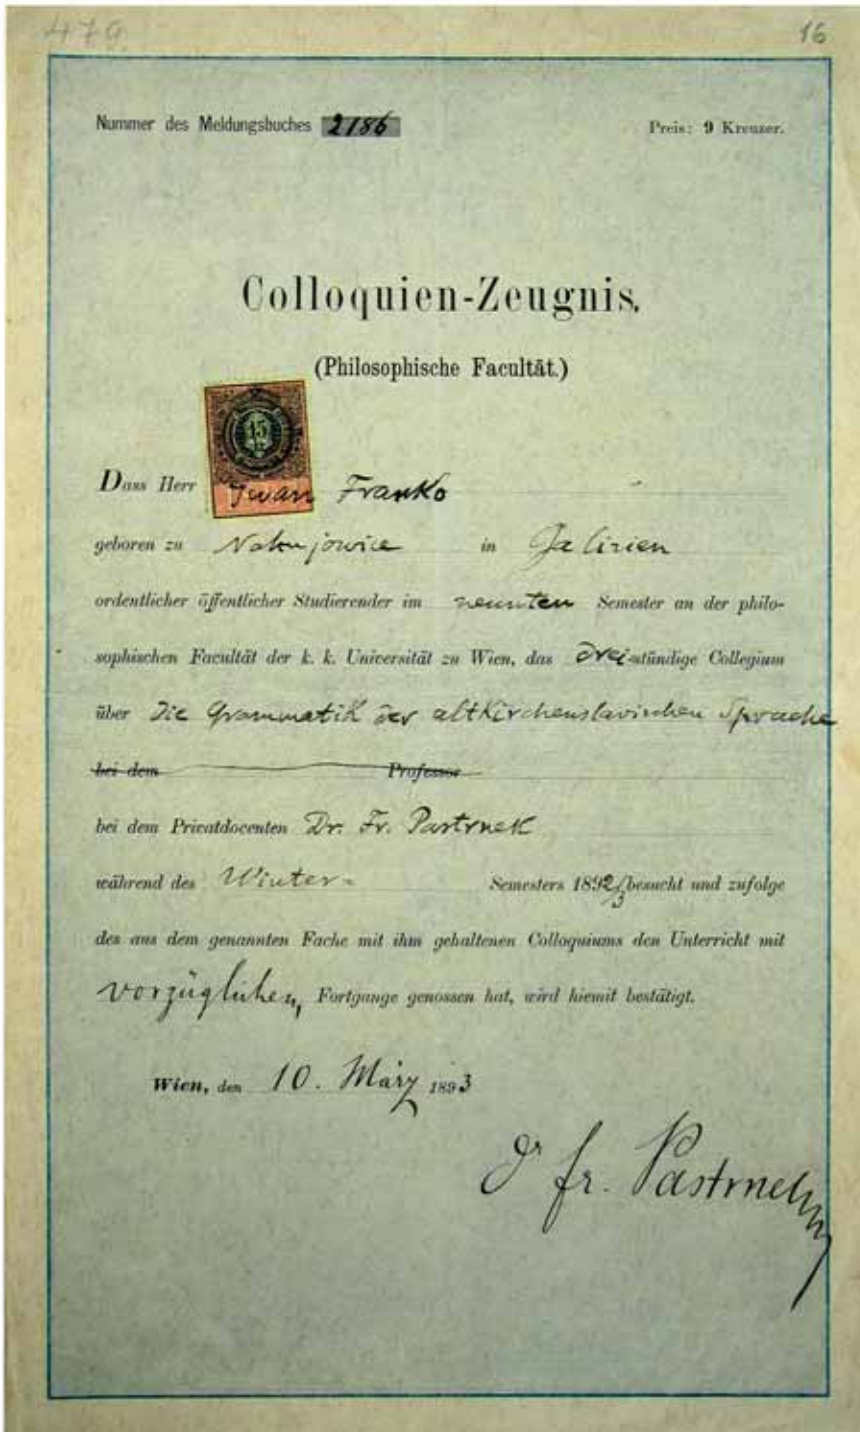 479 16
Nummer des Meldungsbuches 2186 Preis: 9 Kreuzer.
Colloquien-Zeugnis.
(Philosophische Facultät.)
15
Dass Herr Iwan Franko
geboren zu Nahujowice in Galizien
ordentlicher öffentlicher Studierender im neunten Semester an der philo-
sophischen Facultät der k. k. Universität zu Wien, das dreistündige Collegium
über Die Grammatik der altkirchenslavischen Sprache
bei dem Professor
bei dem Privatdocenten Dr. Fr. Pastrnek
während des Winter- Semesters 1892/3 besucht und zufolge
des aus dem genannten Fache mit ihm gehaltenen Colloquiums den Unterricht mit
vorzüglichem Fortgange genossen hat, wird hiemit bestätigt.
Wien, den 10. März 1893
Dr Fr. Pastrnek